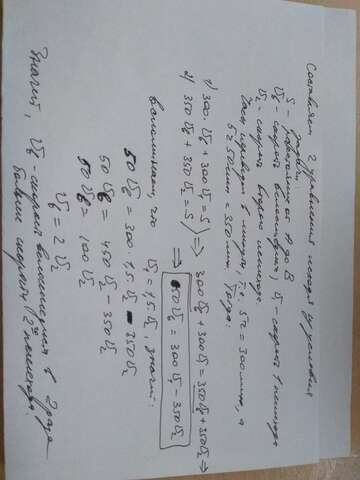 Составляем 2 уравнения исходя из условия
задачи:
S - расстояние от A до B
Vв - скорость велосипедиста; V₁ - скорость 1 пешехода
V₂ - скорость второго пешехода.
Часы переводим в минуты, т.е. 5ч = 300 мин, а
5ч 50 мин = 350 мин. Тогда:
1) 300·Vв + 300V₁ = S
2) 350Vв + 350V₂ = S
⇒ 300Vв + 300V₁ = 350Vв + 350V₂ ⇒
⇒ 50Vв = 300V₁ - 350V₂
Вспоминаем, что V₁ = 1,5V₂, значит:
50Vв = 300·1,5V₂ - 350V₂
50Vв = 450V₂ - 350V₂
50Vв = 100V₂
Vв = 2V₂
Значит, Vв - скорость велосипедиста в 2 раза
больше скорости 2го пешехода.